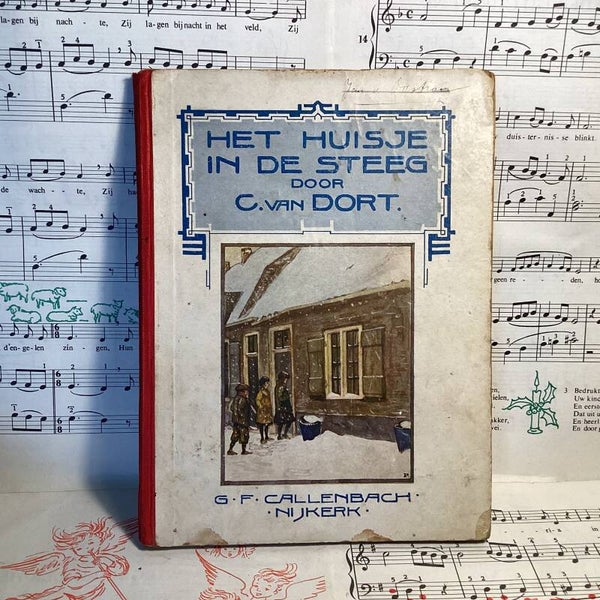 lagen bij nacht te, Zij
lagen bij nacht in het veld, Zij
14
duis - ter - nis - se blinkt.
de wach - te, Zij
geen re -
d'en-ge-len zin - gen, Hun
3 Bedrukt
Uw kin
En eerste
Dat uit u
En heerl
En door
HET HUISJE
IN DE STEEG
DOOR
C. VAN DORT.
G · F · CALLENBACH ·
· NIJKERK ·